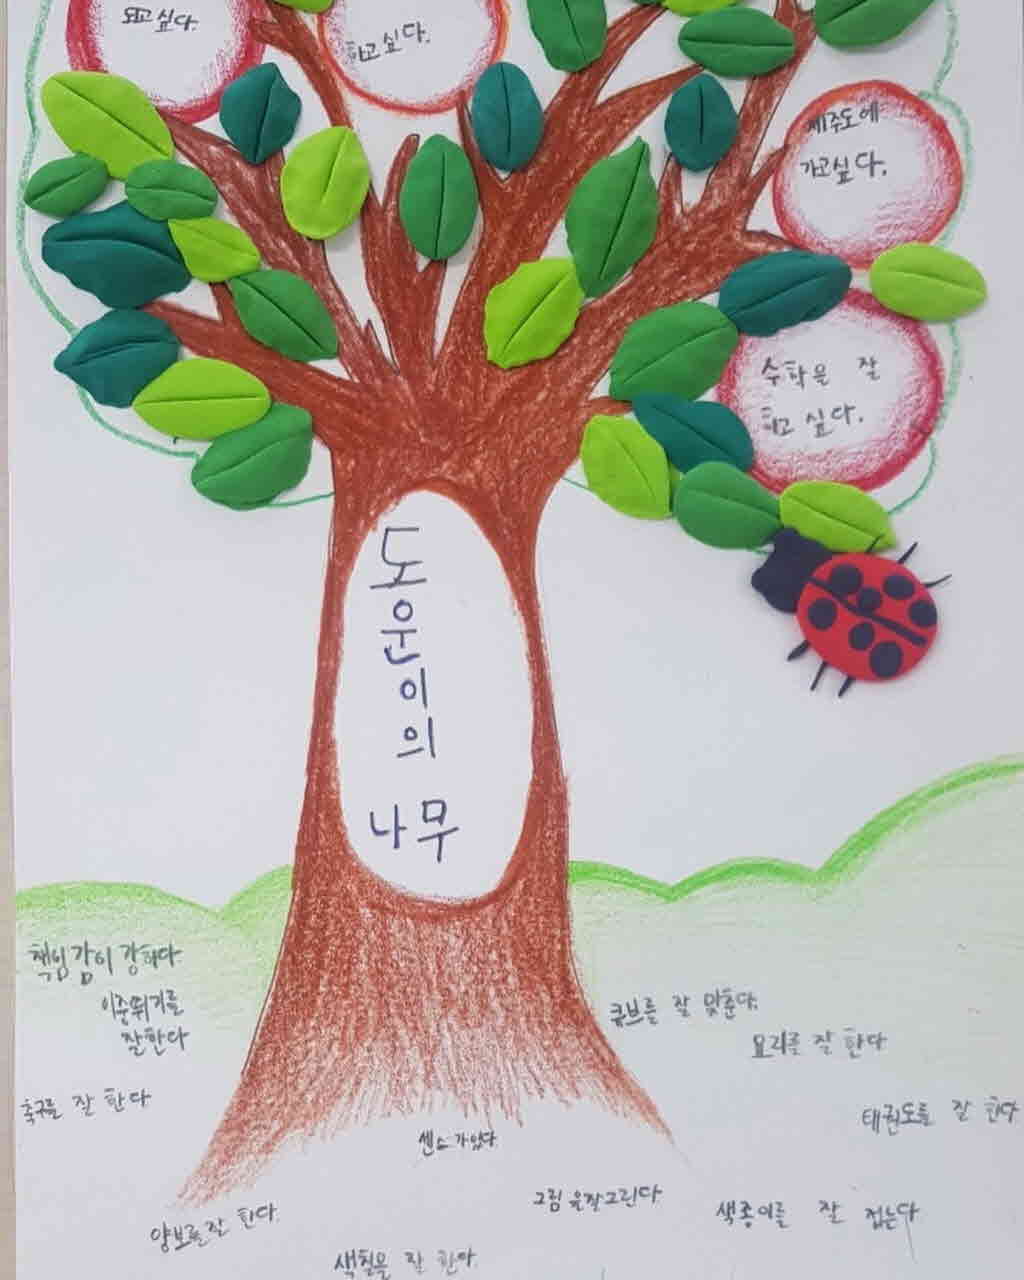 되고싶다.
하고싶다.
제주도에
가고싶다.
수학을 잘
하고 싶다.
도운이의
나무
책임감이 강하다
이중뛰기를
잘한다
큐브를 잘 맞춘다.
요리를 잘 한다
축구를 잘 한다
태권도를 잘 한다
센스가있다.
그림을잘그린다.
색종이를 잘 접는다
양보를잘 한다.
색칠을 잘 한다.